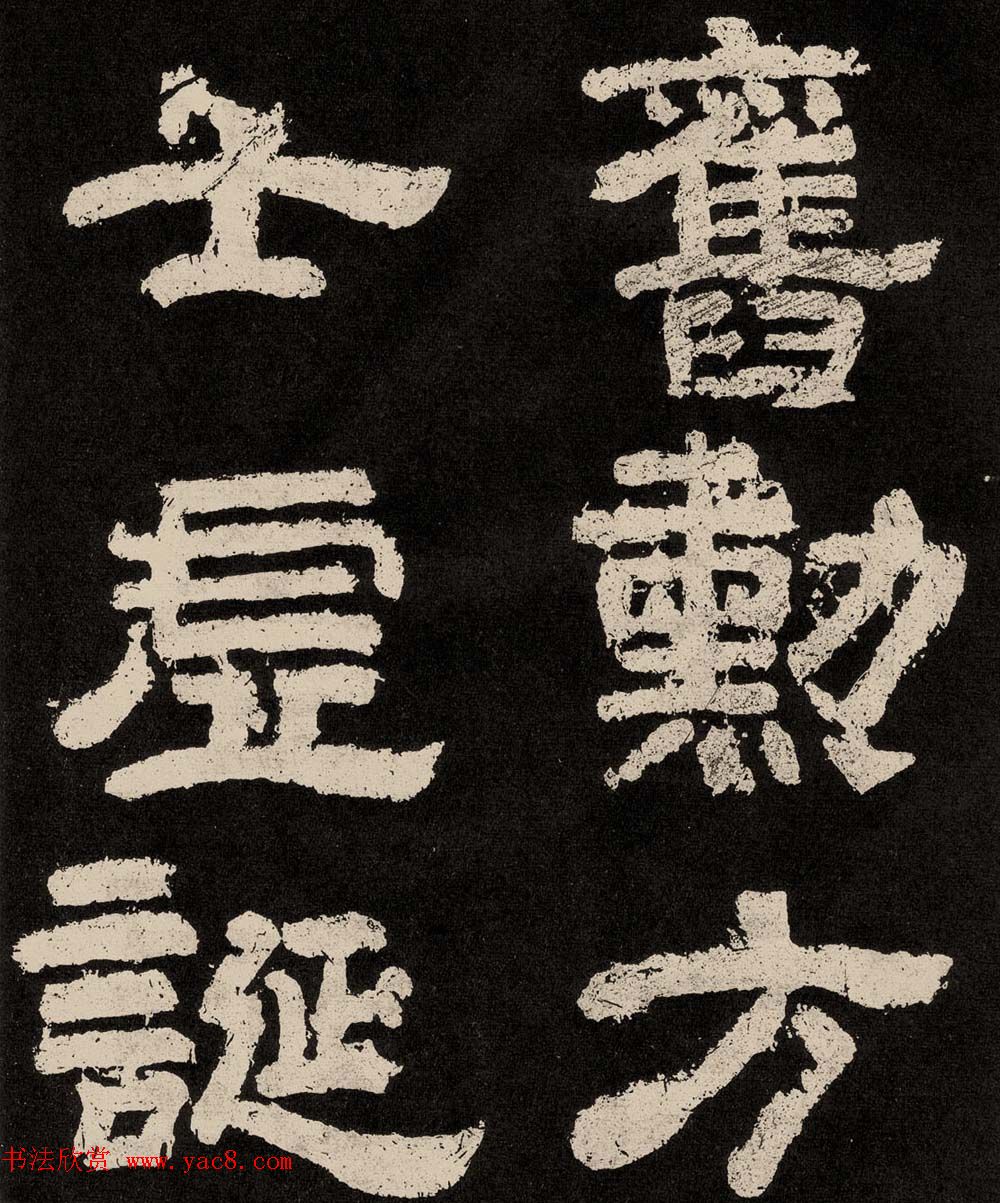 舊勳方
士虛誕
书法欣赏 www.yac8.com